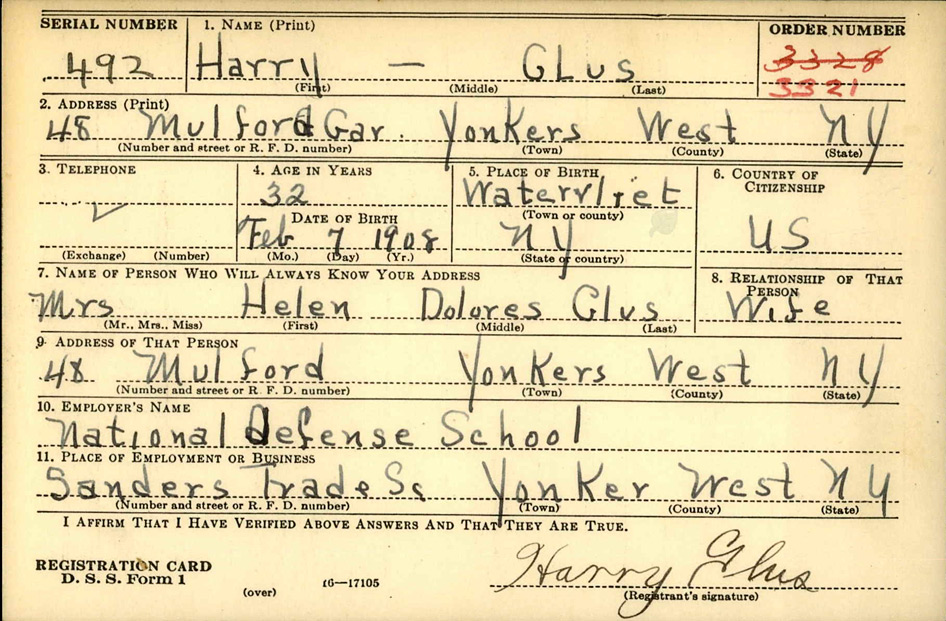 SERIAL NUMBER 1. NAME (Print) ORDER NUMBER
492 Harry — GLUS 3328
(First) (Middle) (Last) 3321
2. ADDRESS (Print)
48 Mulford Gar. Yonkers West NY
(Number and street or R. F. D. number) (Town) (County) (State)
3. TELEPHONE 4. AGE IN YEARS 5. PLACE OF BIRTH 6. COUNTRY OF
32 Watervliet CITIZENSHIP
✓ DATE OF BIRTH (Town or county)
Feb 7 1908 NY US
(Exchange) (Number) (Mo.) (Day) (Yr.) (State or country)
7. NAME OF PERSON WHO WILL ALWAYS KNOW YOUR ADDRESS 8. RELATIONSHIP OF THAT
PERSON
Mrs Helen Dolores Glus Wife
(Mr., Mrs., Miss) (First) (Middle) (Last)
9. ADDRESS OF THAT PERSON
48 Mulford Yonkers West NY
(Number and street or R. F. D. number) (Town) (County) (State)
10. EMPLOYER'S NAME
National Defense School
11. PLACE OF EMPLOYMENT OR BUSINESS
Sanders Trade Sc Yonker West NY
(Number and street or R. F. D. number) (Town) (County) (State)
I AFFIRM THAT I HAVE VERIFIED ABOVE ANSWERS AND THAT THEY ARE TRUE.
REGISTRATION CARD Harry Glus
D. S. S. Form 1 16—17105
(over) (Registrant's signature)